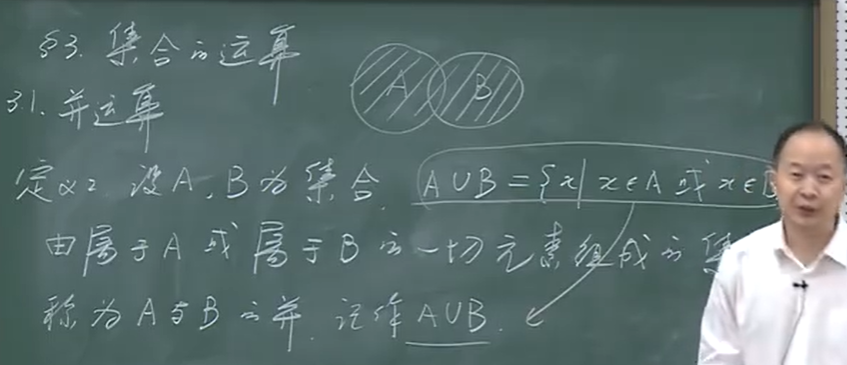 §3. 集合的运算
A B
3.1. 并运算
定义2 设A、B为集合. A∪B={x|x∈A 或 x∈B
由属于A 或 属于B的一切元素组成的集
称为A与B的并. 记作A∪B.